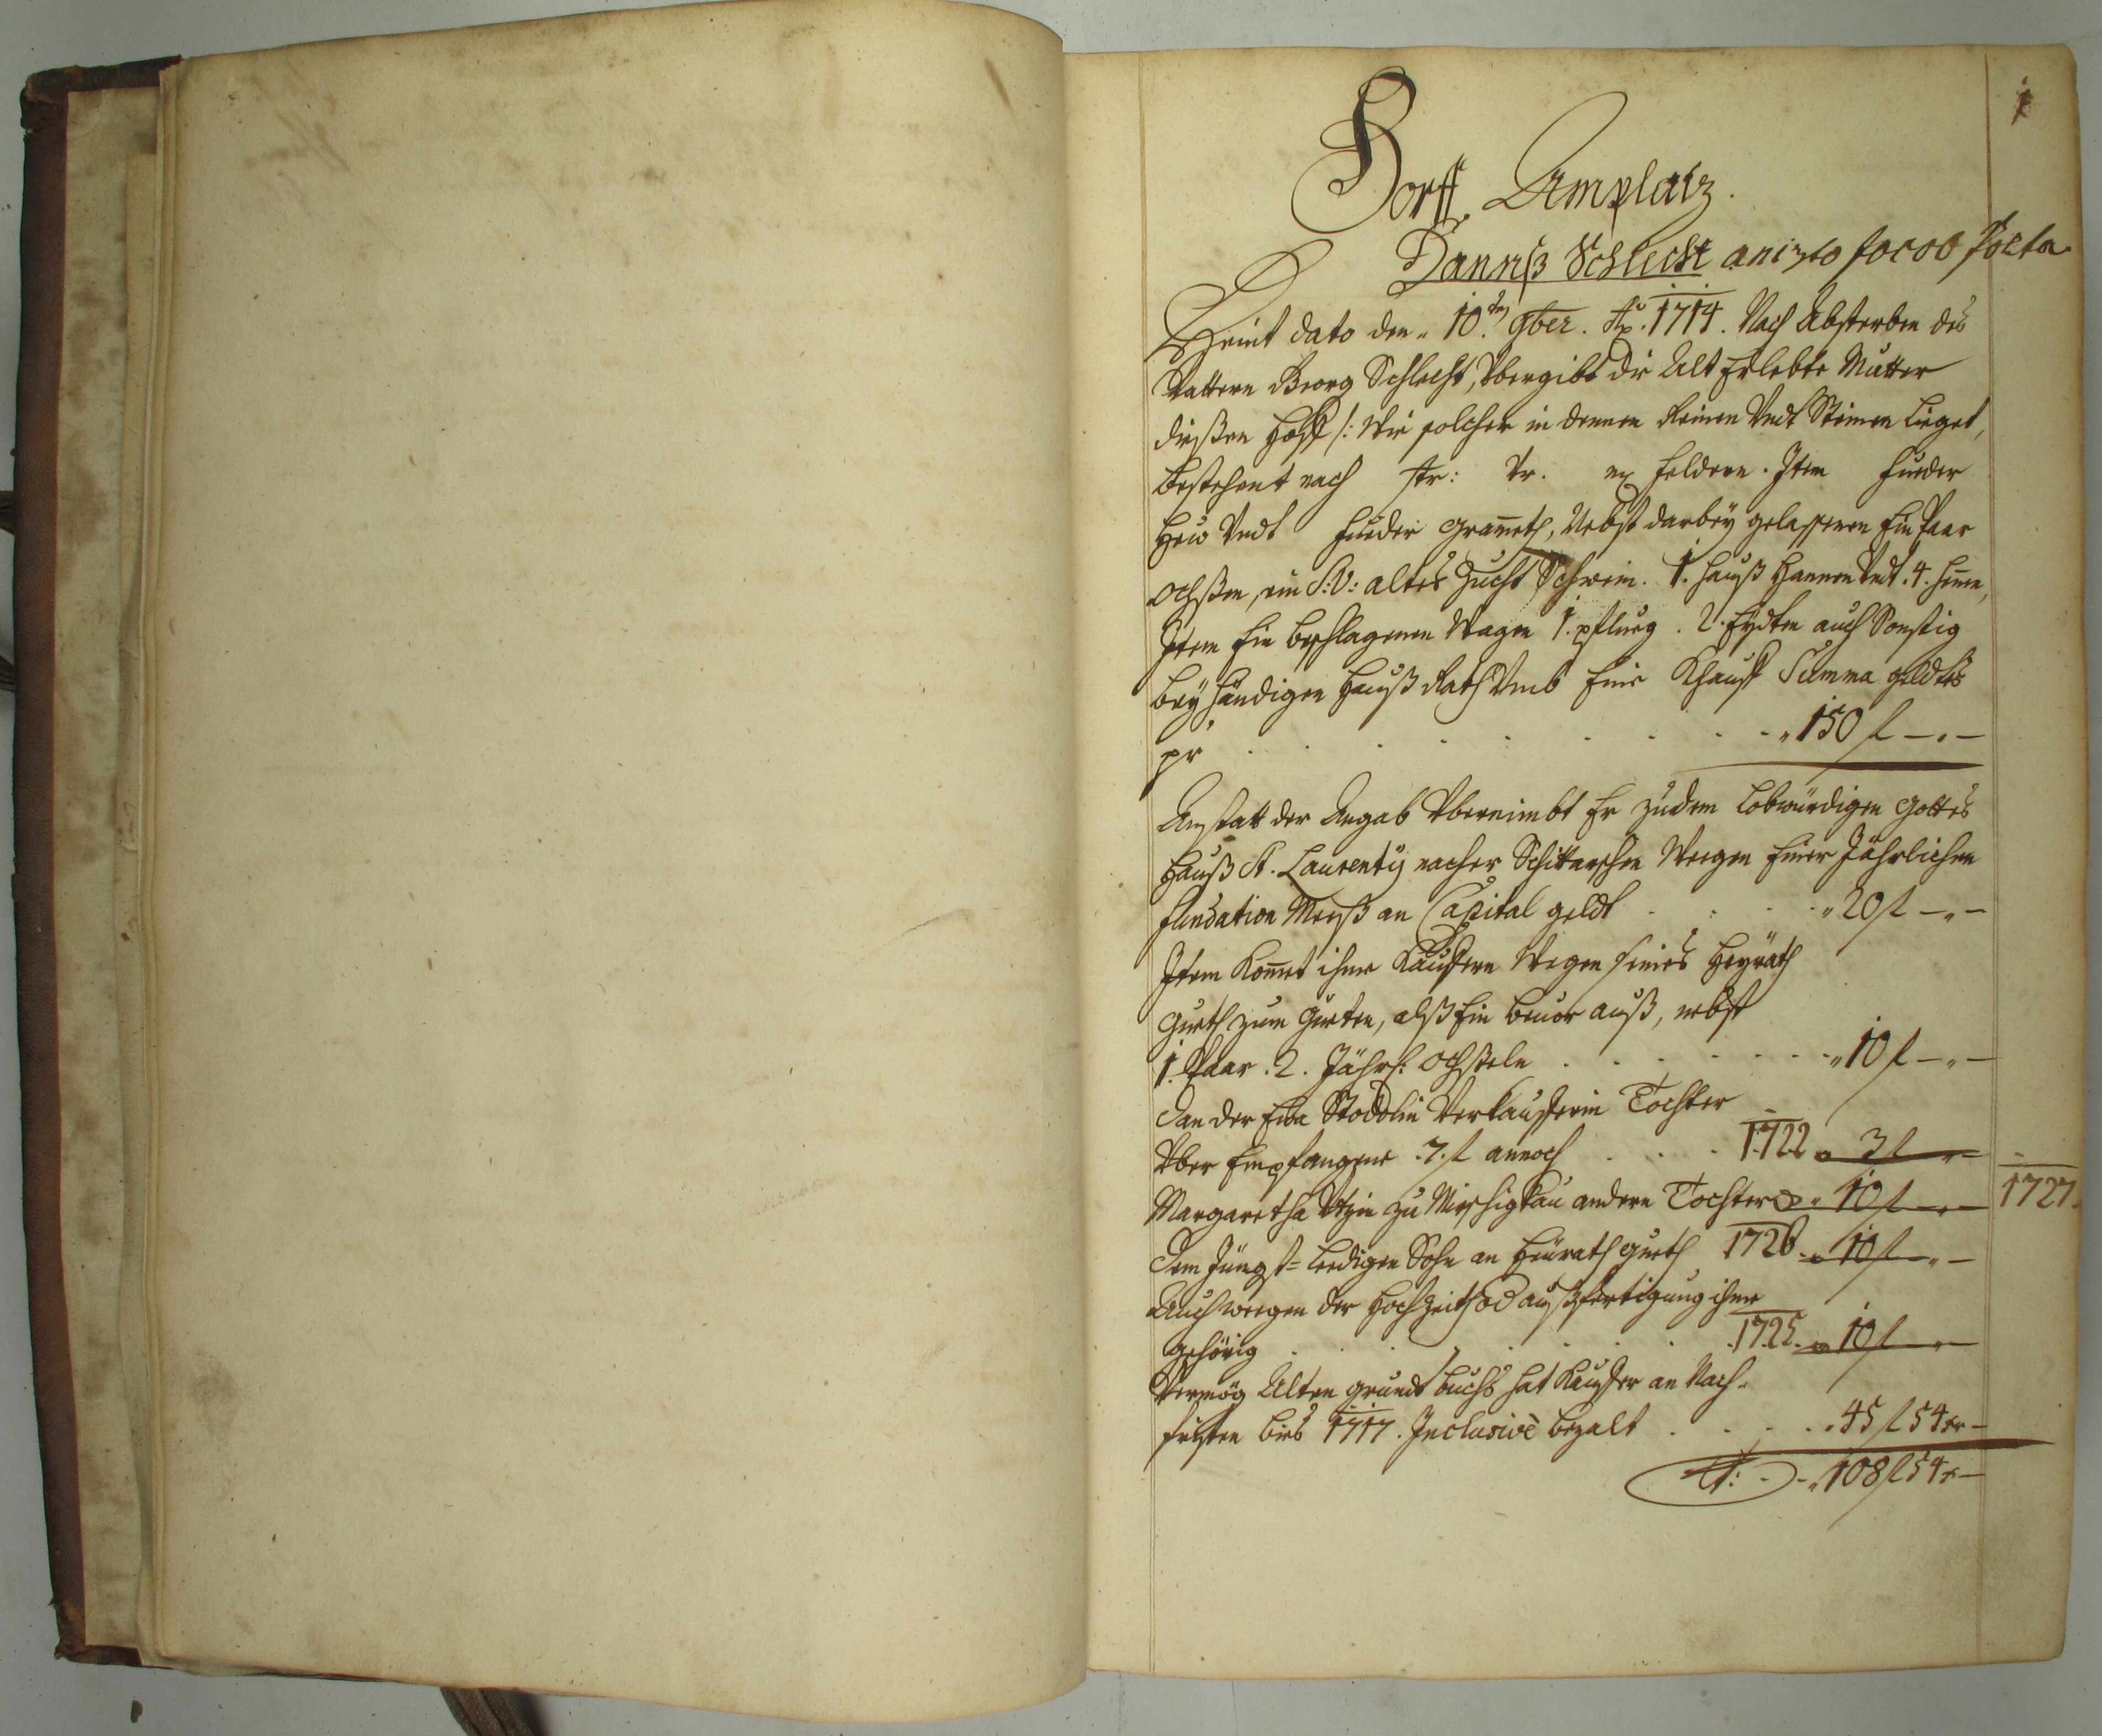 1
Dorff Amplatz.
Danniß Schlecht aniezo Jacob Poeta
Heint dato den 10.ten 9ber. Ao. 1714. Nach Absterben des
Vattern Georg Schlecht, Vbergibt die Alt Erlebte Mutter
dießen Hoff /: Wie solcher in dennen Reinen Vndt Steinen Lieget,
bestehent nach str: Vr. Feldern. Item Fueder
Heu Vndt Fueder Grameth, Nebst darbey gelassenen Ein Paar
Ochßen, ein S: V: altes Zucht Schwein. 1. Hauß Hannen Vndt. 4. Henen,
Item Ein beschlagenen Wagen 1. pflueg. 2. Eydten auch Sonstig
beyhändigen Hauß Rath Vmb Eine Khauff Summa geldtes
pr . . . . . . . . . 150 f – " –
Anstatt der Angab Vbernimbt Er zu dem Lobwürdigen Gottes
Hauß St. Laurenty nacher Schittarschen Weegen Einer Jährlichen
fundation Meeß an Capital geldt . . . . 20 f – " –
Item Komet ihme Kauffern Wegen seines Heyrath
Gueth zum Gueten, alß Ein beuor auß, nebst
1. Paar. 2. Jährl: Ochßeln . . . . . . 10 f – " –
Dan der Eua Verkaufferin Tochter
Vber Empfangene 7. f annoch . . . . 1722 " 3 f – " –
Margaretha zu Mirschigkau andern Tochter " 10 f – " – 1727.
Dem Jüngst=Leedigen Sohn an Heurath Gueth 1726 " 10 f – " –
Auch weegen der Hochzeith od außfertigung ihme
gehörig . . . . . . 1725. " 10 f – " –
Vermög Alten grundt buchs hat Kauffer an Nach-
fristen bies 1717. Inclusivè bezalt . . . . 45 f 54 xr –
Lt: - - " 108 f 54 x –